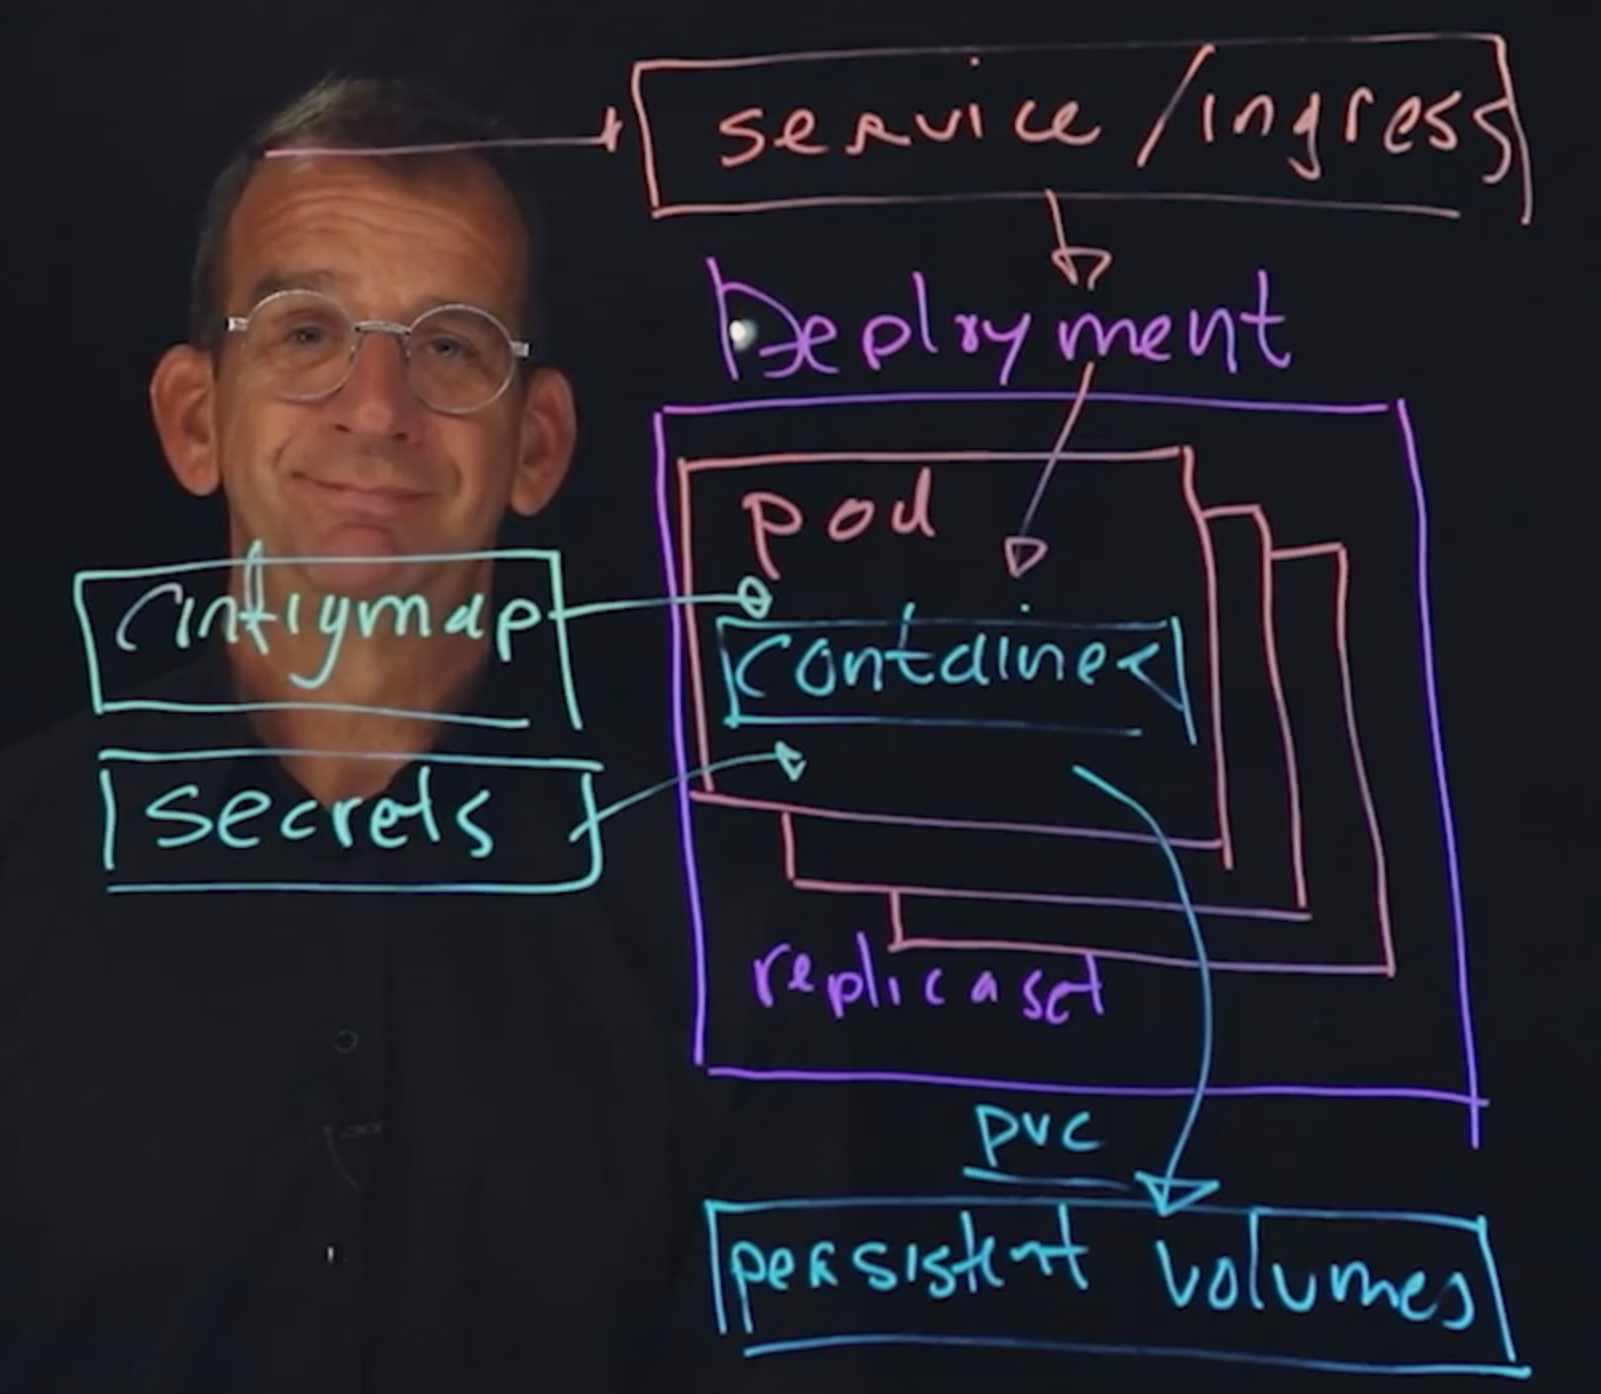 service/ingress
Deployment
pod
configmap
container
secrets
replicaset
pvc
persistent volumes